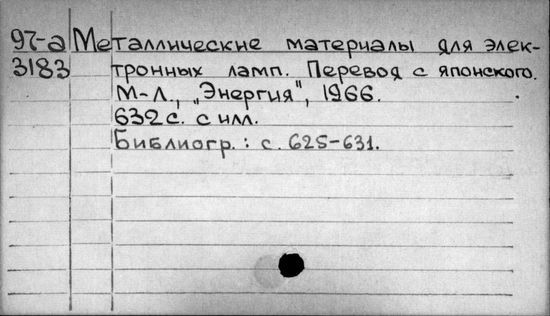 97-а Металлические материалы для элек-
3183 тронных ламп. Перевод с японского.
М-Л., „Энергия", 1966.
632 с. с илл.
Библиогр.: с. 625-631.